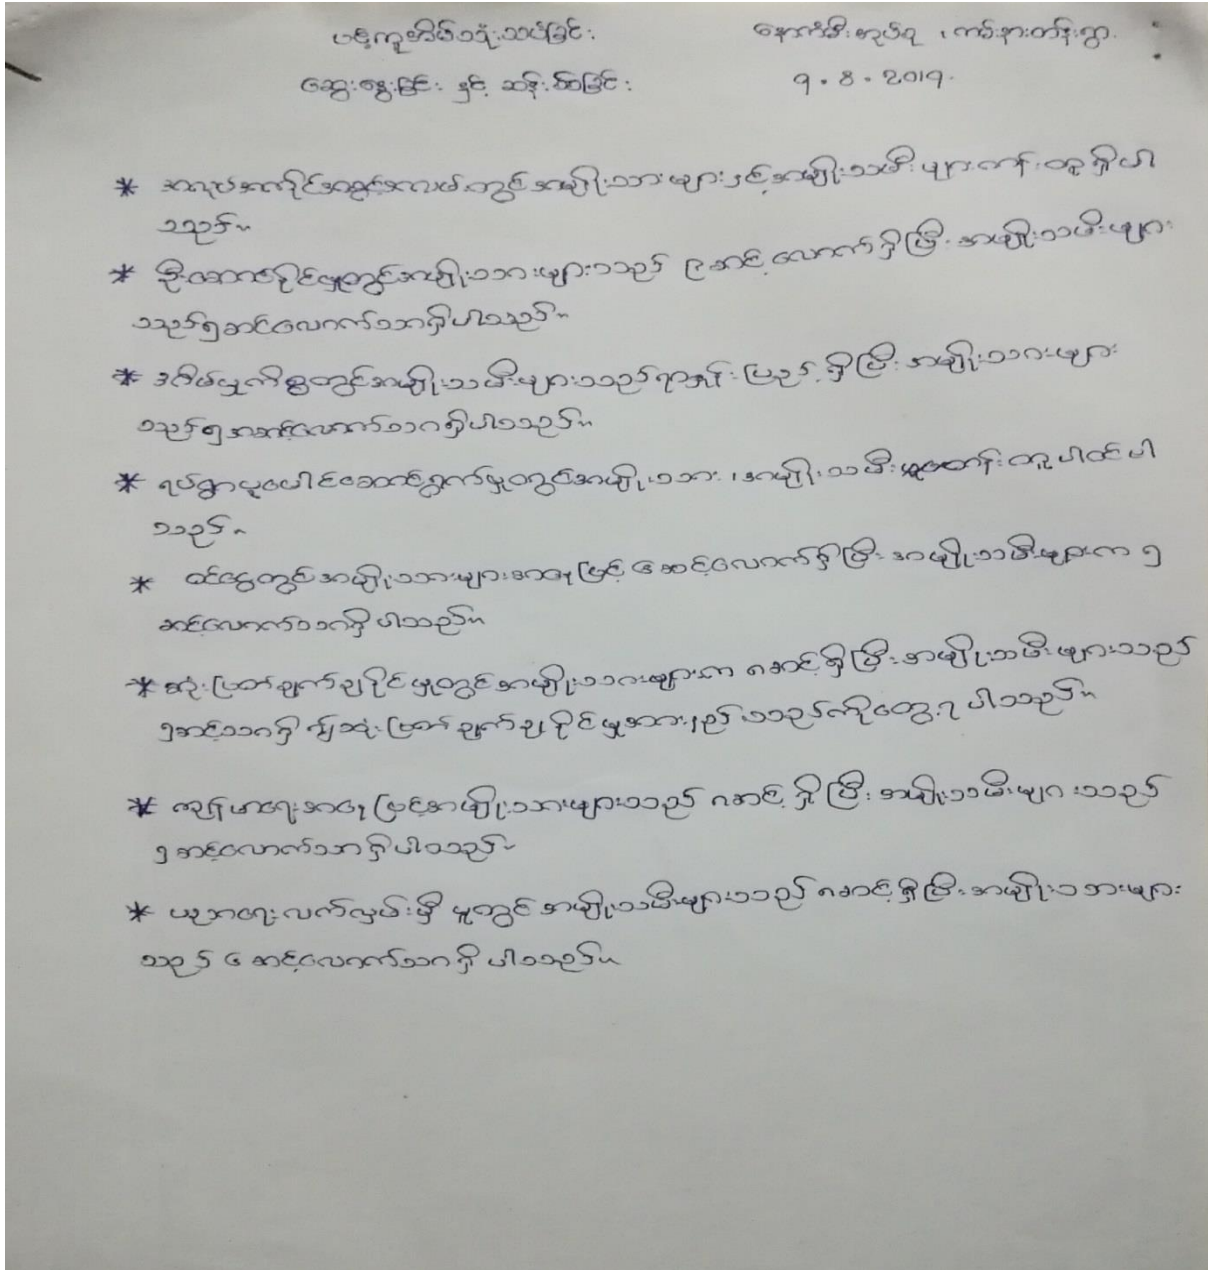 ပဋ္ဌကူအိမ်သုံးသပ်ခြင်း နောက်မီးအုပ်စု၊ ကမ်းနားတန်းရွာ
ဆွေးနွေးခြင်း နှင့် ဆန်းစစ်ခြင်း ၇.၈.2019.
* အလုပ်အကိုင်အခွင့်အလမ်းတွင်အမျိုးသားများနှင့်အမျိုးသမီးများတန်းတူရှိပါ
သည်။
* ဦးဆောင်နိုင်မှုတွင်အမျိုးသားများသည် ၉ဆင့်လောက်ရှိပြီး အမျိုးသမီးများ
သည်၅ဆင့်လောက်သာရှိပါသည်။
* အိမ်မှုကိစ္စတွင်အမျိုးသမီးများသည်ရာနှုန်းပြည့်ရှိပြီး အမျိုးသားများ
သည်၅အဆင့်လောက်သာရှိပါသည်။
* ရပ်ရွာပူပေါင်းဆောင်ရွက်မှုတွင်အမျိုးသား၊အမျိုးသမီး တန်းတူပါဝင်ပါ
သည်။
* ဝင်ငွေတွင်အမျိုးသားများအနေဖြင့် ၆ဆင့်လောက်ရှိပြီး အမျိုးသမီးများက ၅
ဆင့်လောက်သာရှိပါသည်။
* ဆုံးဖြတ်ချက်ချနိုင်မှုတွင်အမျိုးသားများက ၈ဆင့်ရှိပြီး အမျိုးသမီးများသည်
၅ဆင့်သာရှိ၍ဆုံးဖြတ်ချက်ချနိုင်မှုအားနည်းသည်ကိုတွေ့ရပါသည်။
* ကျန်းမာရေးအနေဖြင့်အမျိုးသားများသည် ၈ဆင့်ရှိပြီး အမျိုးသမီးများသည်
၅ဆင့်လောက်သာရှိပါသည်။
* ပညာရေးလက်လှမ်းမှီမှုတွင်အမျိုးသမီးများသည် ၈ဆင့်ရှိပြီး အမျိုးသားများ
သည် ၆ဆင့်လောက်သာရှိပါသည်။